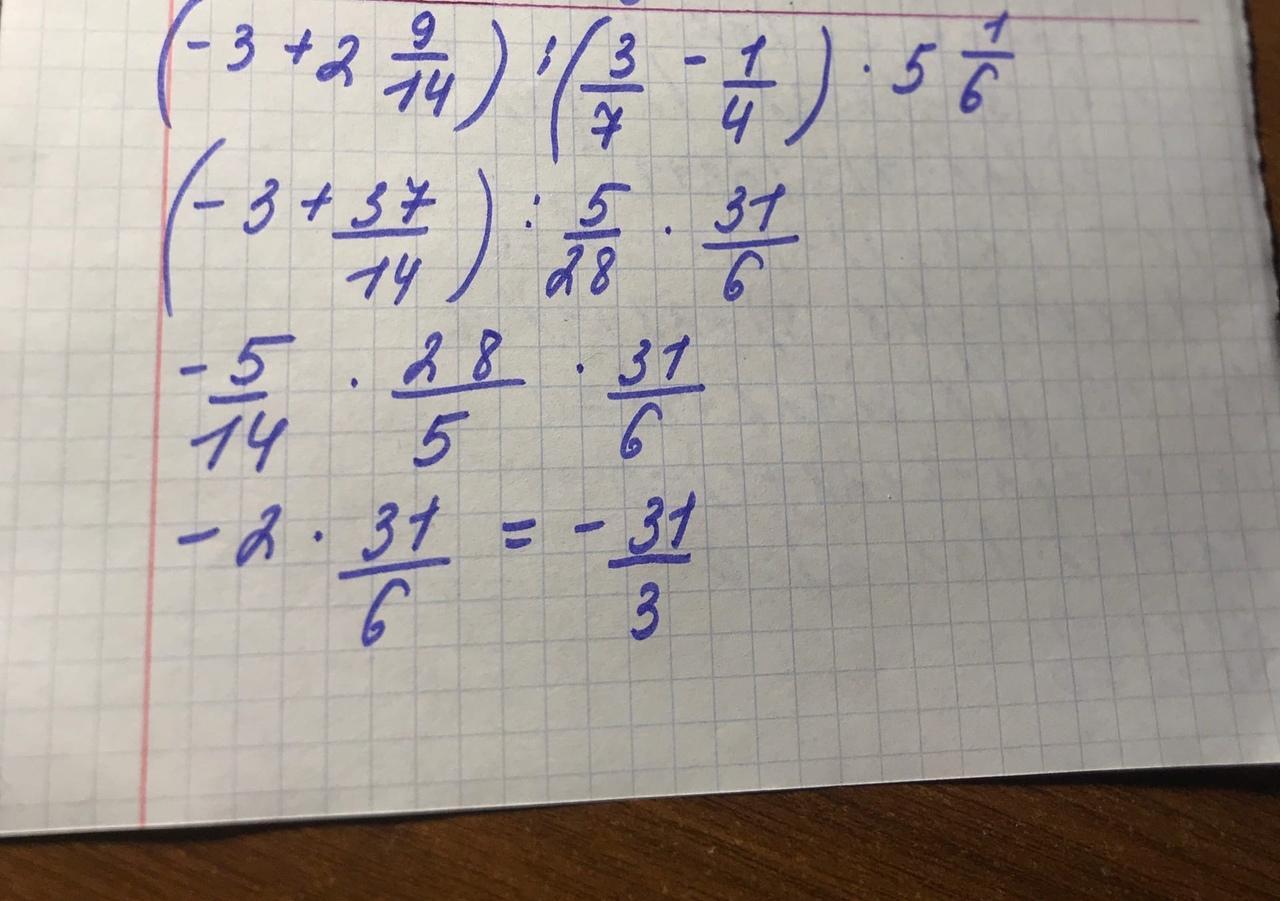 (-3 + 2 9/14) : (3/7 - 1/4) · 5 1/6
(-3 + 37/14) : 5/28 · 31/6
-5/14 · 28/5 · 31/6
-2 · 31/6 = -31/3